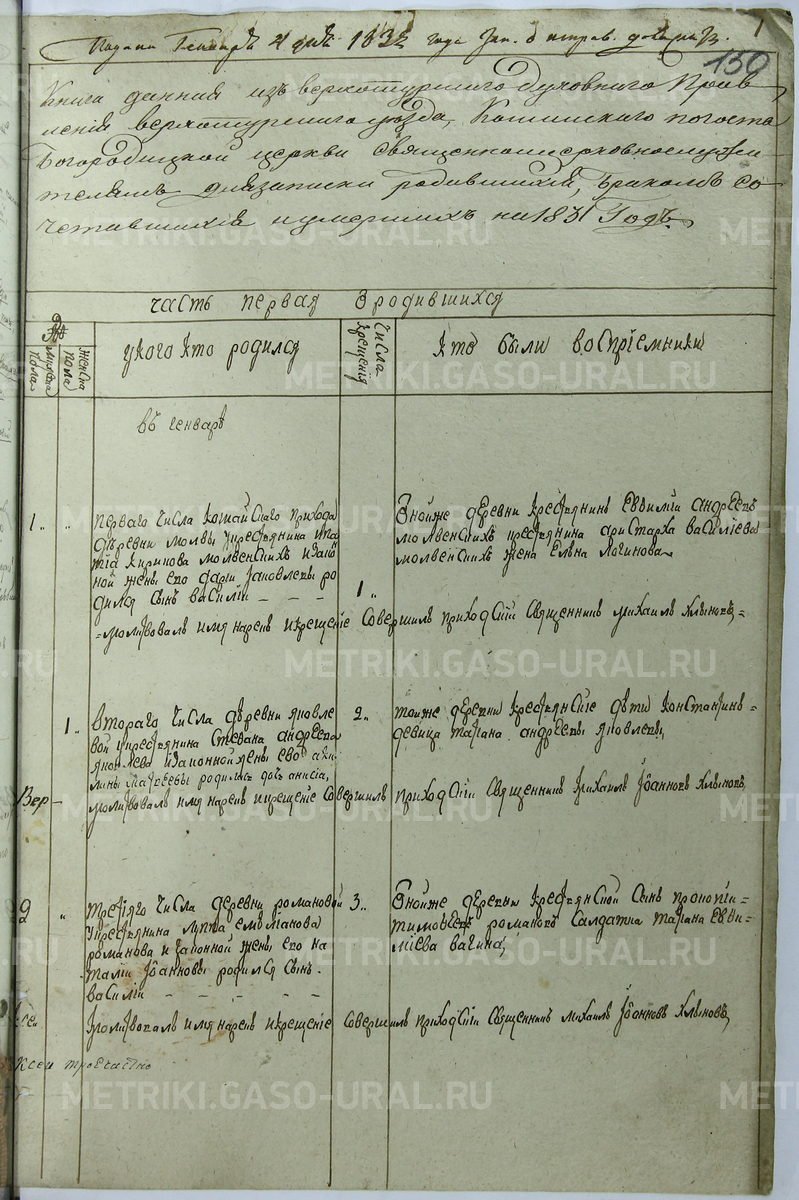 Подана Генваря 4 дня 1832 года
1
150
Книга данная изъ верхотурскаго Духовнаго Прав
ленія верхотурскаго уѣзда, Кошайскаго погоста
Богородицкой церкви священноицерковнослужи
телямъ длязаписки родившихся, бракомъ со
четавшихся иумершихъ на 1831 Годъ.
часть первая Ородившихся
мужеска пола
женска пола
укого кто родился
Числа крещенія
кто были воспріемники
въ генварѣ
1.
перваго числа кошайскаго прихода
деревни молвы укрестьянина ипа
тіа киринова молвенскихъ изакон
ной жены его дарьи яковлевы ро
дился сынъ василій
1
Тойже деревни крестьянинъ Евѳимій андреевъ
молвенскихъ крестьянина аристарха василіева
молвенскихъ жена Елена логинова
молитвовалъ имя нарекъ икрещеніе Совершилъ приходскій Священникъ михаилъ Хлыновъ
1.
втораго числа деревни яковле
вой укрестьянина Стефана андреева
яковлева изаконной жены его аки
лины матвеевы родилась дочь анисіа,
2.
тойже деревни крестьянскіе дѣти константинъ
девица татіана андреевы яковлевы,
Вер
молитвовалъ имя нарекъ икрещеніе Совершилъ приходскій Священникъ михаилъ Іоанновъ Хлыновъ
2
третяго числа деревни романовой
укрестьянина луки емеліанова
романова изаконной жены его на
таліи Іоанновы родился сынъ
василій
3.
Тойже деревни крестьянской Сынъ прокопій
тимофеевъ романовъ Салдатка татіана Евѳи
міева вагина,
молитвовалъ имя нарекъ икрещеніе Совершилъ приходскій Священникъ михаилъ Іоанновъ Хлыновъ,
METRIKI.GASO-URAL.RU